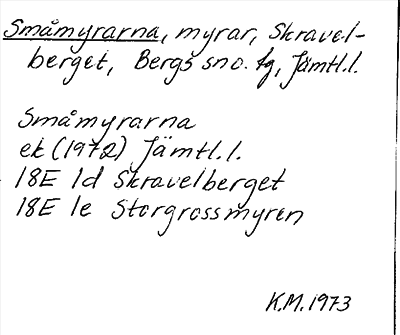 Småmyrarna, myrar, Skravel-
berget, Bergs sn o. tg, Jämtl.l.
Småmyrarna
ek (1972) Jämtl.l.
18E 1d Skravelberget
18E 1e Storgrossmyren
K.M. 1973